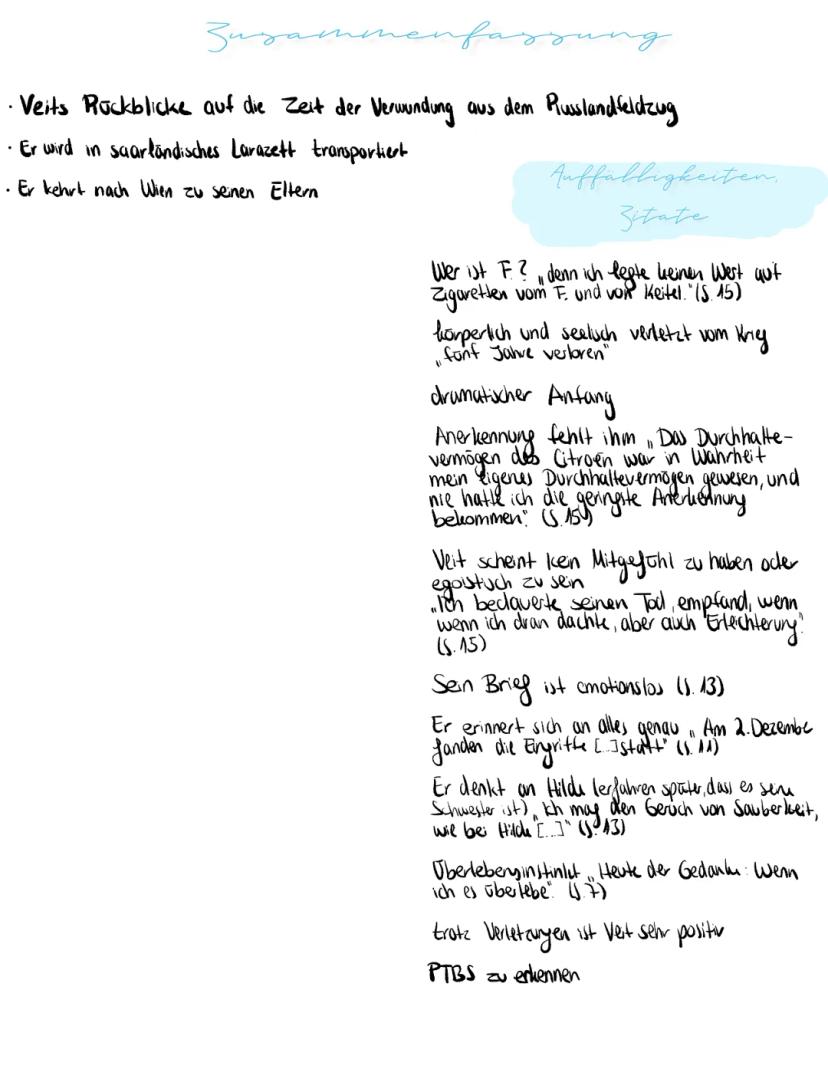 Zusammenfassung
· Veits Rückblicke auf die Zeit der Verwundung aus dem Russlandfeldzug
· Er wird in saarländisches Larazett transportiert
· Er kehrt nach Wien zu seinen Eltern
Auffälligkeiten,
Zitate
Wer ist F.? „denn ich legte keinen Wert auf
Zigaretten vom F. und von Keitel." (S. 15)
körperlich und seelisch verletzt vom Krieg
„fünf Jahre verloren"
dramatischer Anfang
Anerkennung fehlt ihm „Das Durchhalte-
vermögen des Citroën war in Wahrheit
mein eigenes Durchhaltevermögen gewesen, und
nie hatte ich die geringste Anerkennung
bekommen." (S. 15)
Veit scheint kein Mitgefühl zu haben oder
egoistisch zu sein
„Ich bedauerte seinen Tod, empfand, wenn
wenn ich dran dachte, aber auch Erleichterung"
(S. 15)
Sein Brief ist emotionslos (S. 13)
Er erinnert sich an alles genau „Am 2. Dezember
fanden die Eingriffe [...] statt" (S. 11)
Er denkt an Hilde (erfahren später, dass es seine
Schwester ist) „Ich mag den Geruch von Sauberkeit,
wie bei Hilde [...]" (S. 13)
Überlebensinstinkt „Heute der Gedanke: Wenn
ich es überlebe". (S. 7)
trotz Verletzungen ist Veit sehr positiv
PTBS zu erkennen